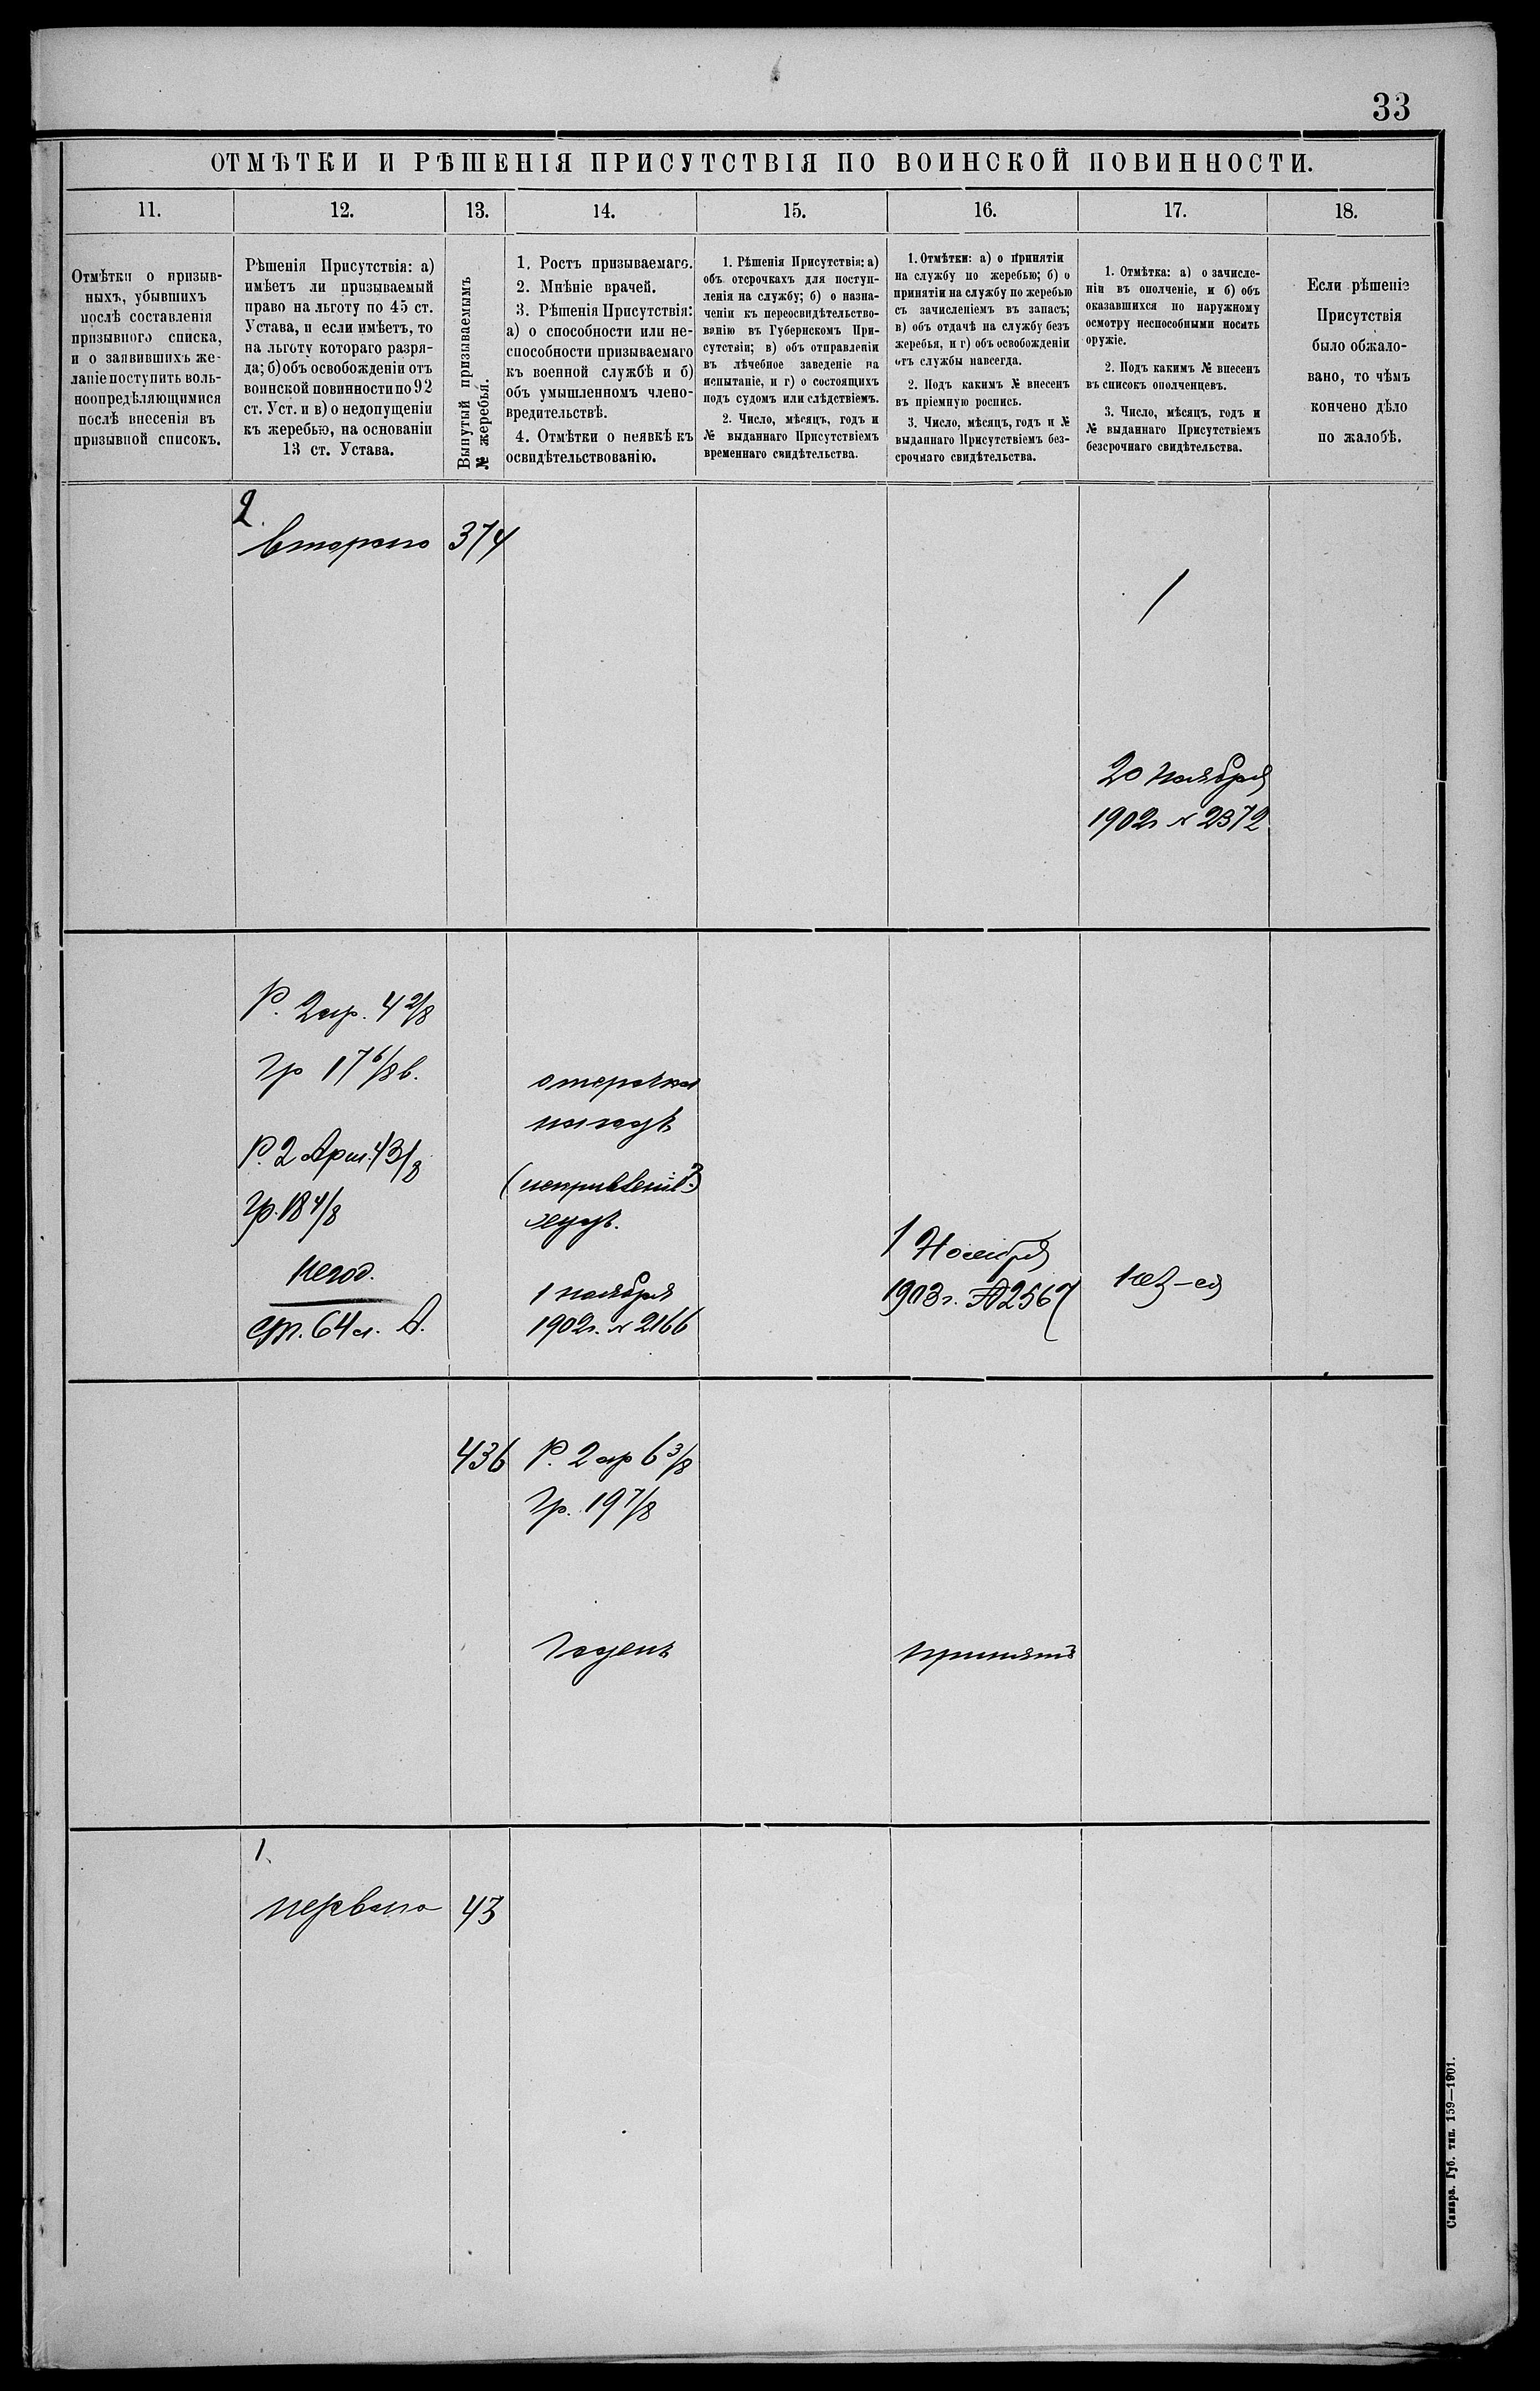 33
ОТМѢТКИ И РѢШЕНІЯ ПРИСУТСТВІЯ ПО ВОИНСКОЙ ПОВИННОСТИ.
11.
12.
13.
14.
15.
16.
17.
18.
Отмѣтки о призыв-
ныхъ, убывшихъ
послѣ составленія
призывного списка,
и о заявившихъ же-
ланіе поступить воль-
ноопредѣляющимися
послѣ внесенія въ
призывной списокъ.
Рѣшенія Присутствія: а)
имѣетъ ли призываемый
право на льготу по 45 ст.
Устава, и если имѣетъ, то
на льготу котораго разря-
да; б) объ освобожденіи отъ
воинской повинности по 92
ст. Уст. и в) о недопущеніи
къ жеребью, на основаніи
13 ст. Устава.
Вынутый призываемымъ
№ жеребья.
1. Ростъ призываемаго.
2. Мнѣніе врачей.
3. Рѣшенія Присутствія:
а) о способности или не-
способности призываемаго
къ военной службѣ и б)
объ умышленномъ члено-
вредительствѣ.
4. Отмѣтки о неявкѣ къ
освидѣтельствованію.
1. Рѣшенія Присутствія: а)
объ отсрочкахъ для поступ-
ленія на службу; б) о назна-
ченіи къ переосвидѣтельство-
ванію въ Губернскомъ При-
сутствіи; в) объ отправленіи
въ лѣчебное заведеніе на
испытаніе, и г) о состоящихъ
подъ судомъ или слѣдствіемъ.
2. Число, мѣсяцъ, годъ и
№ выданнаго Присутствіемъ
временнаго свидѣтельства.
1. Отмѣтки: а) о принятіи
на службу по жеребью; б) о
принятіи на службу по жеребью
съ зачисленіемъ въ запасъ;
в) объ отдачѣ на службу безъ
жеребья, и г) объ освобожденіи
отъ службы навсегда.
2. Подъ какимъ № внесенъ
въ пріемную роспись.
3. Число, мѣсяцъ, годъ и №
выданнаго Присутствіемъ без-
срочнаго свидѣтельства.
1. Отмѣтка: а) о зачисле-
ніи въ ополченіе, и б) объ
оказавшихся по наружному
осмотру неспособными носить
оружіе.
2. Подъ какимъ № внесенъ
въ списокъ ополченцевъ.
3. Число, мѣсяцъ, годъ и
№ выданнаго Присутствіемъ
безсрочнаго свидѣтельства.
Если рѣшеніе
Присутствія
было обжало-
вано, то чѣмъ
кончено дѣло
по жалобѣ.
2.
Второго
374
20 ноября
1902г № 2372
Р. 2 ар. 4 2/8
Гр 17 6/8 в.
Р. 2 Арш. 4 3/8
Гр. 18 4/8
Негод.
ст. 64 л. А.
отсрочка
на годъ
1 ноября
1902г. № 2166
1 Ноября
1903 г. № 2567
436
Р. 2 ар 6 3/8
Гр. 19 7/8
Годенъ
принятъ
1.
первого
43
Самара. Губ. тип. 159—1901.